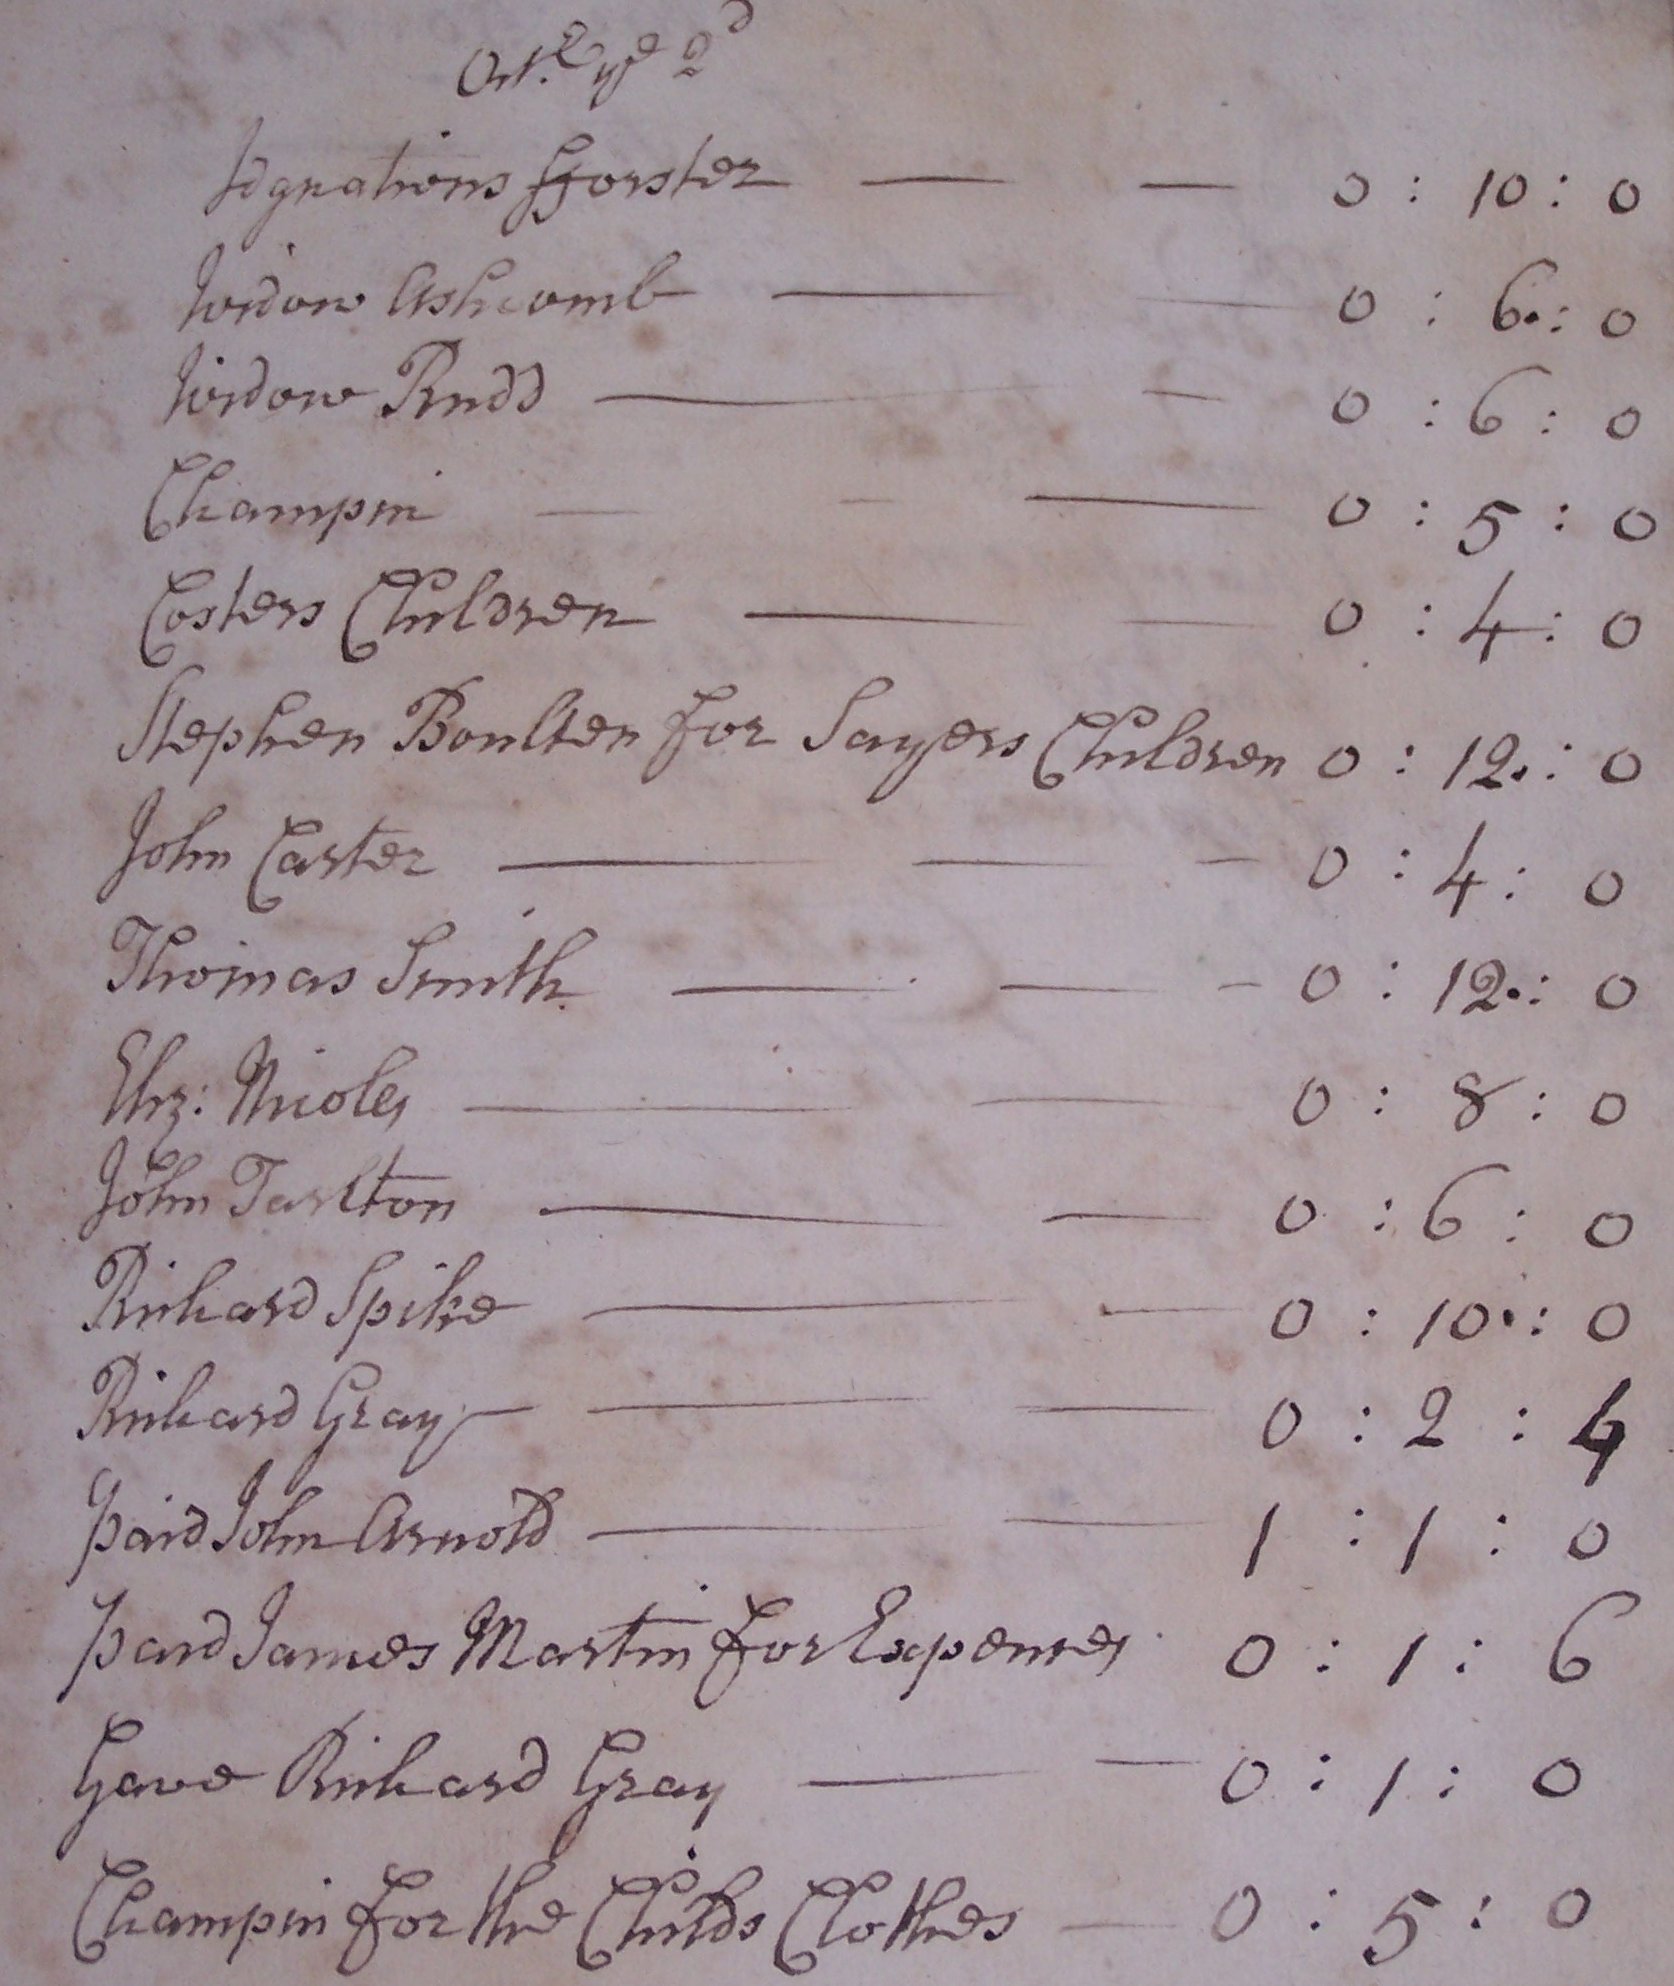 Oct.r ye 2d
Ignatious Fforster — — 0 : 10 : 0
Widow Ashcomb — — 0 : 6 : 0
Widow Rudd — — 0 : 6 : 0
Champin — — — 0 : 5 : 0
Costers Children — — 0 : 4 : 0
Stephen Boulten for Sayers Children 0 : 12 : 0
John Carter — — — 0 : 4 : 0
Thomas Smith — — — 0 : 12 : 0
Eliz: Nicoles — — 0 : 8 : 0
John Tarlton — — 0 : 6 : 0
Richard Spike — — 0 : 10 : 0
Richard Gray — — — 0 : 2 : 4
paid John Arnold — — 1 : 1 : 0
paid James Martin for Expences 0 : 1 : 6
Gave Richard Gray — — 0 : 1 : 0
Champin for the Childs Clothes — 0 : 5 : 0